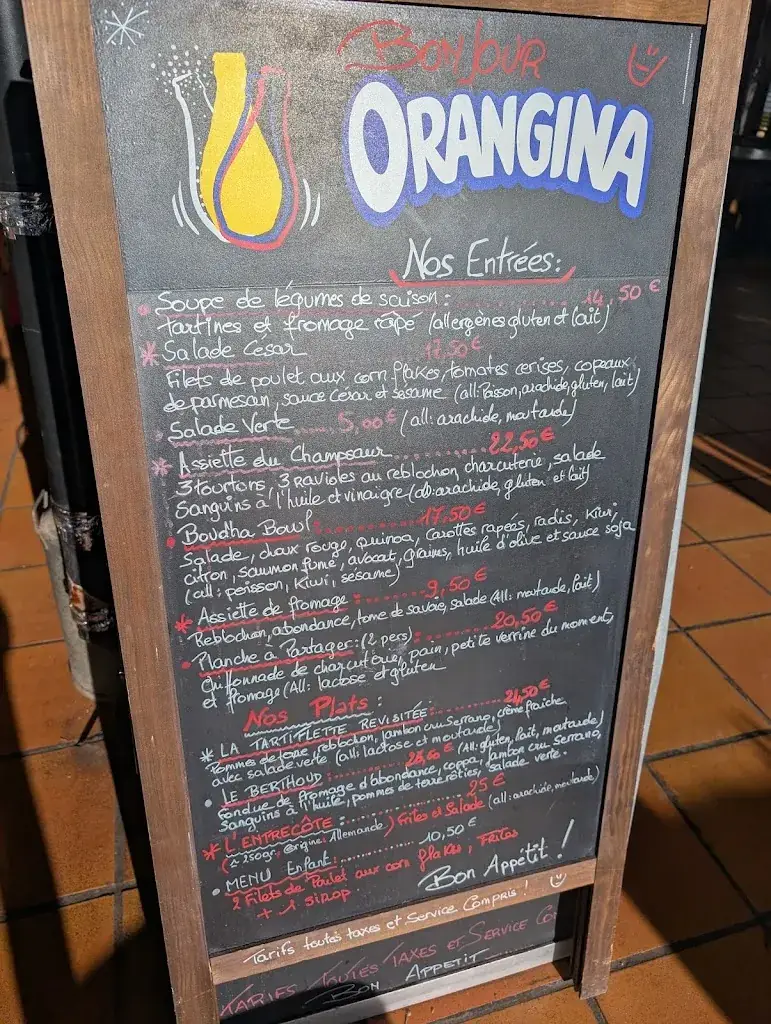 Bonjour
ORANGINA
Nos Entrées:
Soupe de légumes de saison: 14,50€
Tartines et fromage râpé (allergènes gluten et lait)
Salade César 17,50€
Filets de poulet aux corn flakes, tomates cerises, copeaux
de parmesan, sauce César et sésame (all: Poisson, arachide, gluten, lait)
Salade Verte 5,00€ (all: arachide, moutarde)
Assiette du Champsaur 22,50€
3 tourtons, 3 Ravioles au reblochon, charcuterie, salade
Sanguins à l'huile et vinaigre (all: arachide, gluten et lait)
Boudha Bowl: 17,50€
Salade, choux rouge, quinoa, carottes rapées, radis, Kiwi,
citron, saumon fumé, avocat, graines, huile d'olive et sauce soja
(all: poisson, Kiwi, sésame)
Assiette de fromage: 9,50€
Reblochon, abondance, tome de savoie, salade (All: moutarde, lait)
Planche à Partager: (2 pers) 20,50€
Chiffonnade de charcuterie, pain, petite verrine du moment,
et fromage (All: lactose et gluten
Nos Plats:
LA TARTIFLETTE REVISITÉE: 24,50€
Pommes de terre, reblochon, jambon cru Serrano, crème fraîche
avec salade verte (all: lactose et moutarde)
LE BERTHOUD: € (All: gluten, lait, moutarde)
Fondue de fromage d'abondance, coppa, jambon cru Serrano,
Sanguins à l'huile, pommes de terre rôties, salade verte.
L'ENTRECÔTE: 25€
(± 250gr, Origine: Allemande) Frites et Salade (all: arachide, moutarde)
MENU Enfant: 10,50€
2 Filets de Poulet aux corn flakes, Frites
+ 1 sirop
Bon Appétit!
Tarifs toutes taxes et Service Compris!
TARIFS TOUTES TAXES ET SERVICE Co
BON APPETIT